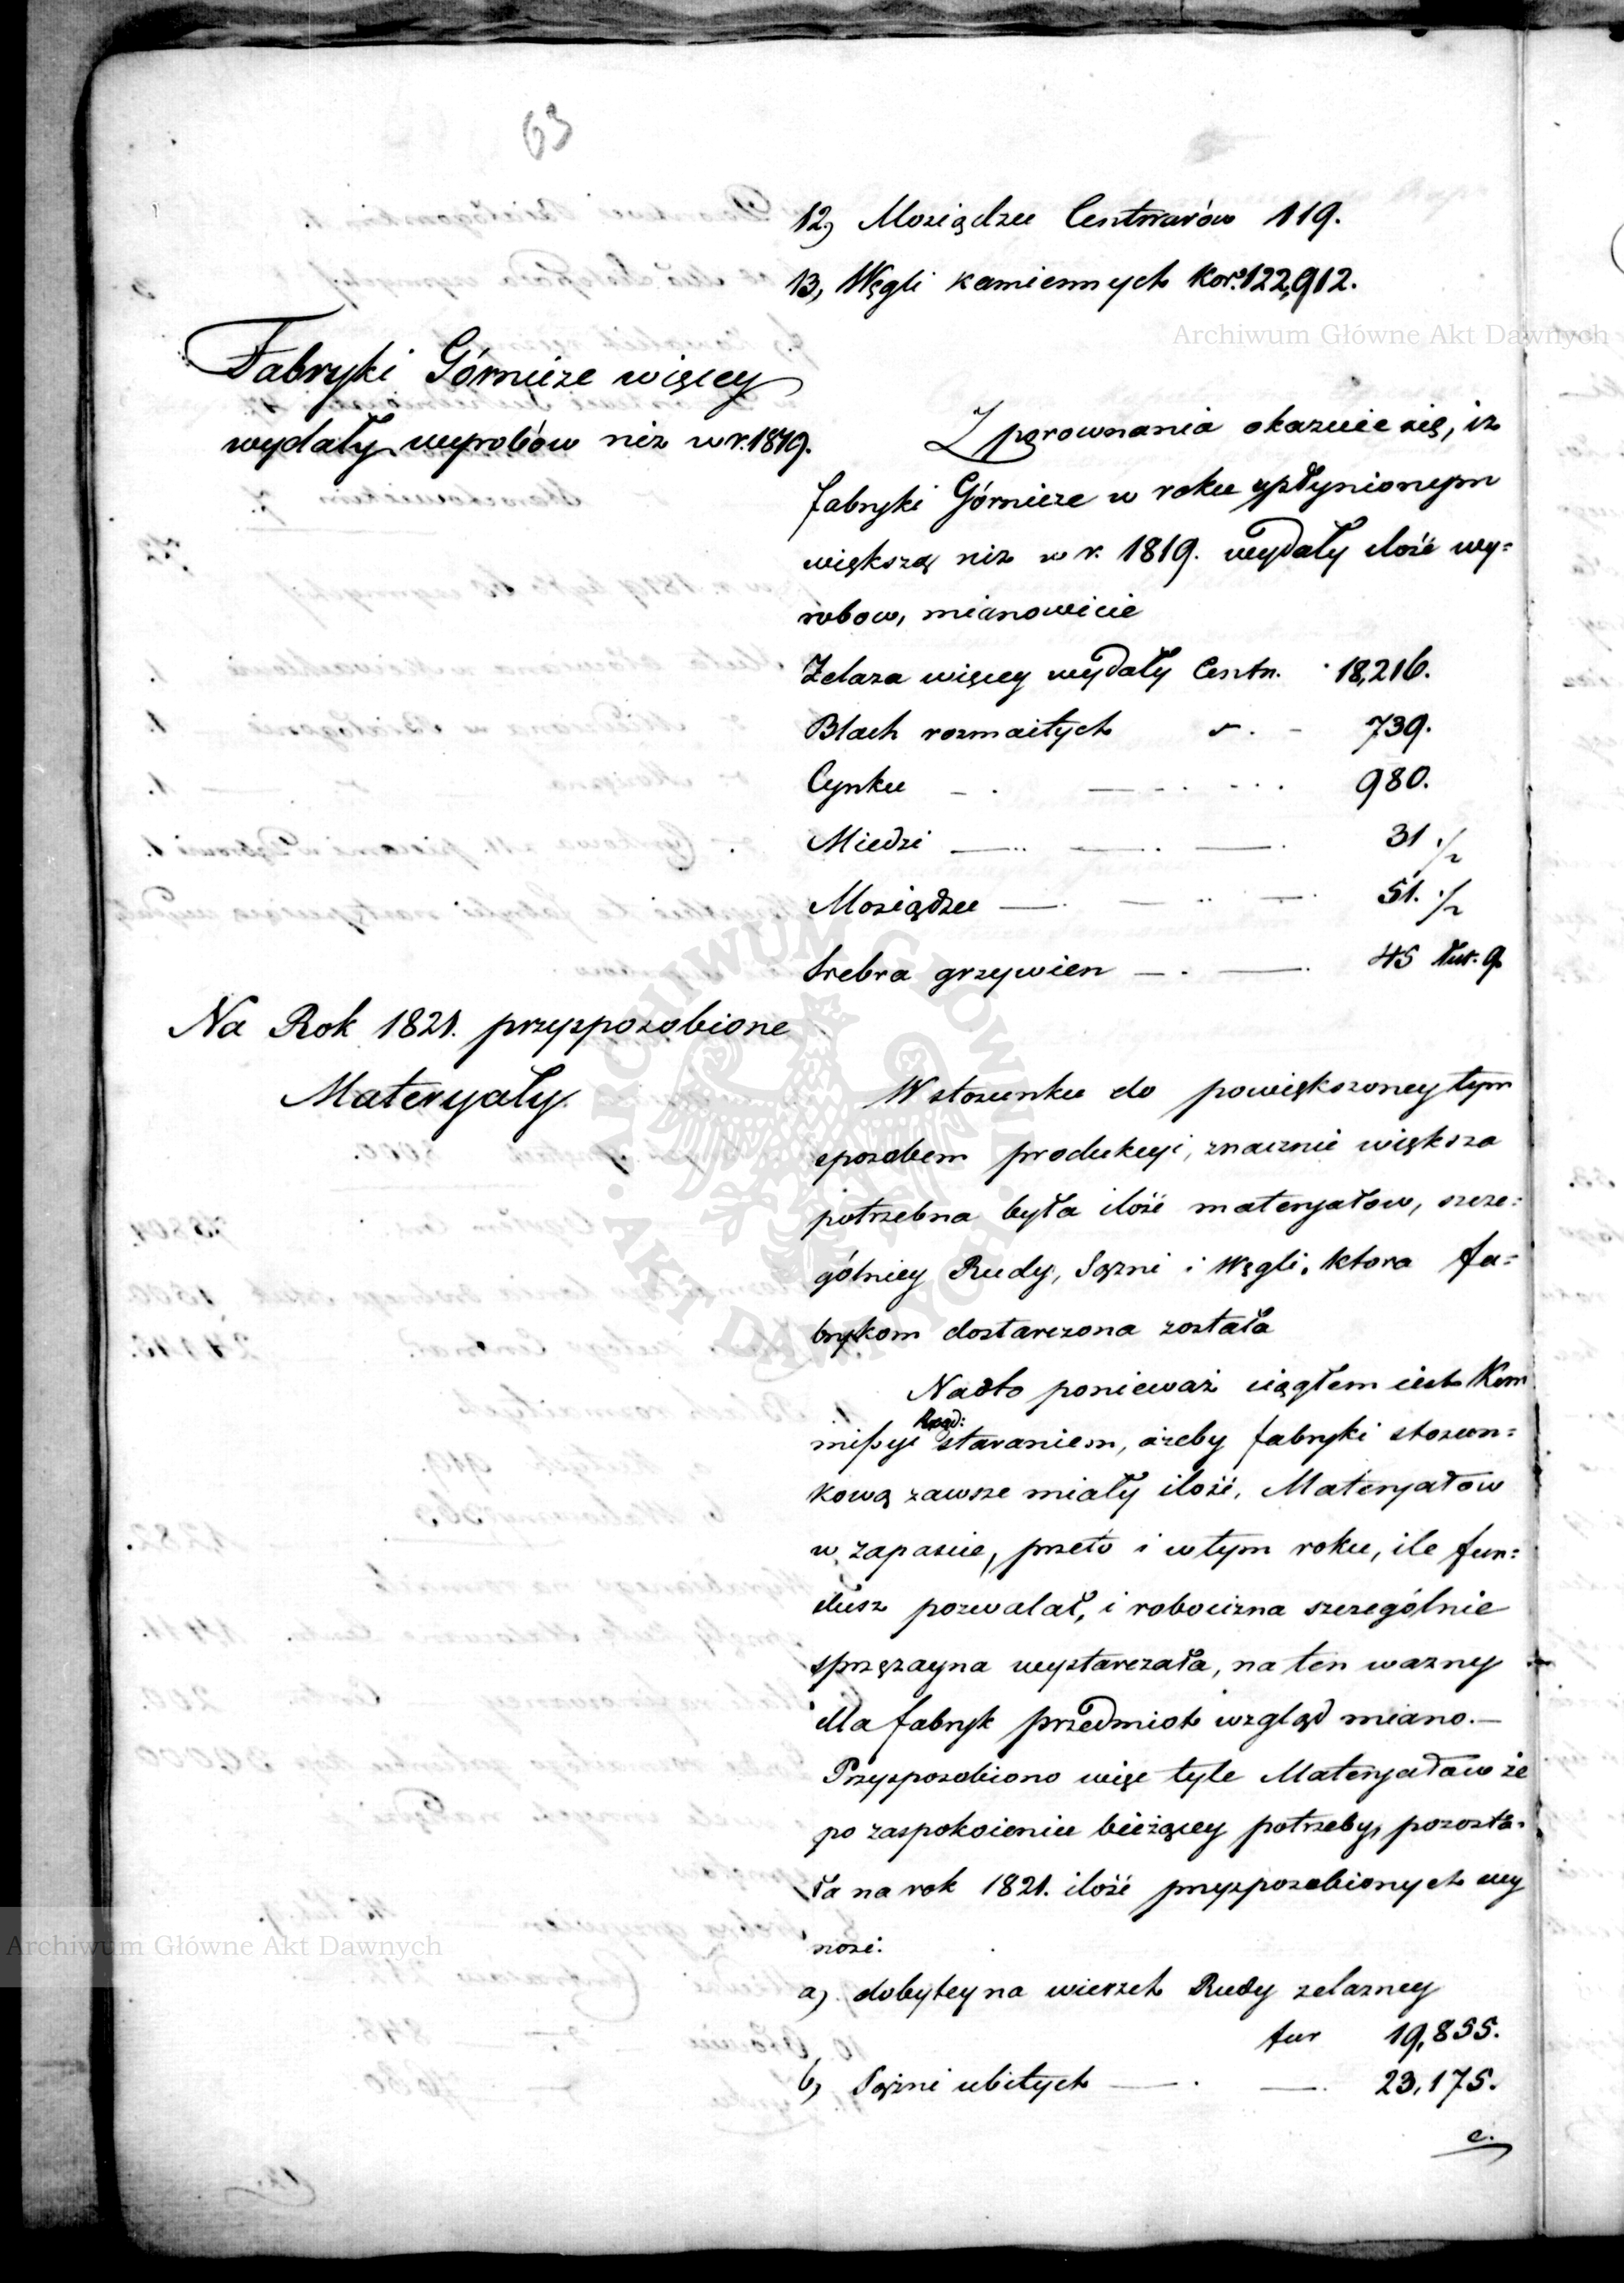 63
12, Mosiądzu Centnarów 119.
13, Węgli kamiennych Kor. 122,912.
Archiwum Główne Akt Dawnych
Fabryki Górnicze więcey
wydały wyrobów niz w r. 1819.
Z porownania okazuie się, iz
fabryki Górnicze w roku upłynionym
większą niz w r. 1819. wydały ilość wy=
robow, mianowicie
Zelaza więcey wydały Centn. 18,216.
Blach rozmaitych 739.
Cynku 980.
Miedzi 31 1/2
Mosiądzu 51. 1/2
Srebra grzywien 45 łut. 9
Na Rok 1821. przysposobione
Materyały.
W stosunku do powiększoney tym
sposobem produkcyi, znacznie większa
potrzebna była ilość materyałow, szcze=
gólniey Rudy, Sązni i Węgli, ktora fa=
brykom dostarczona została
Nadto ponieważ ciągłem iest Kom
missyi Rząd: staraniem, ażeby fabryki stosun=
kową zawsze miały ilość, Materyałow
w zapasie, przeto i w tym roku, ile fun=
dusz pozwalał, i robocizna szczególnie
sprzęzayna wystarczała, na ten wazny
dla fabryk przedmiot wzgląd miano.—
Przysposobiono więc tyle Materyałow że
po zaspokoieniu bieżącey potrzeby, pozosta=
ła na rok 1821. ilość przysposobionych wy
nosi:
Archiwum Główne Akt Dawnych
a, dobytey na wierzch Rudy zelazney
fur 19,855.
b, Sązni ubitych 23,175.
c.
ARCHIWUM GŁÓWNE · AKT DAWNYCH ·